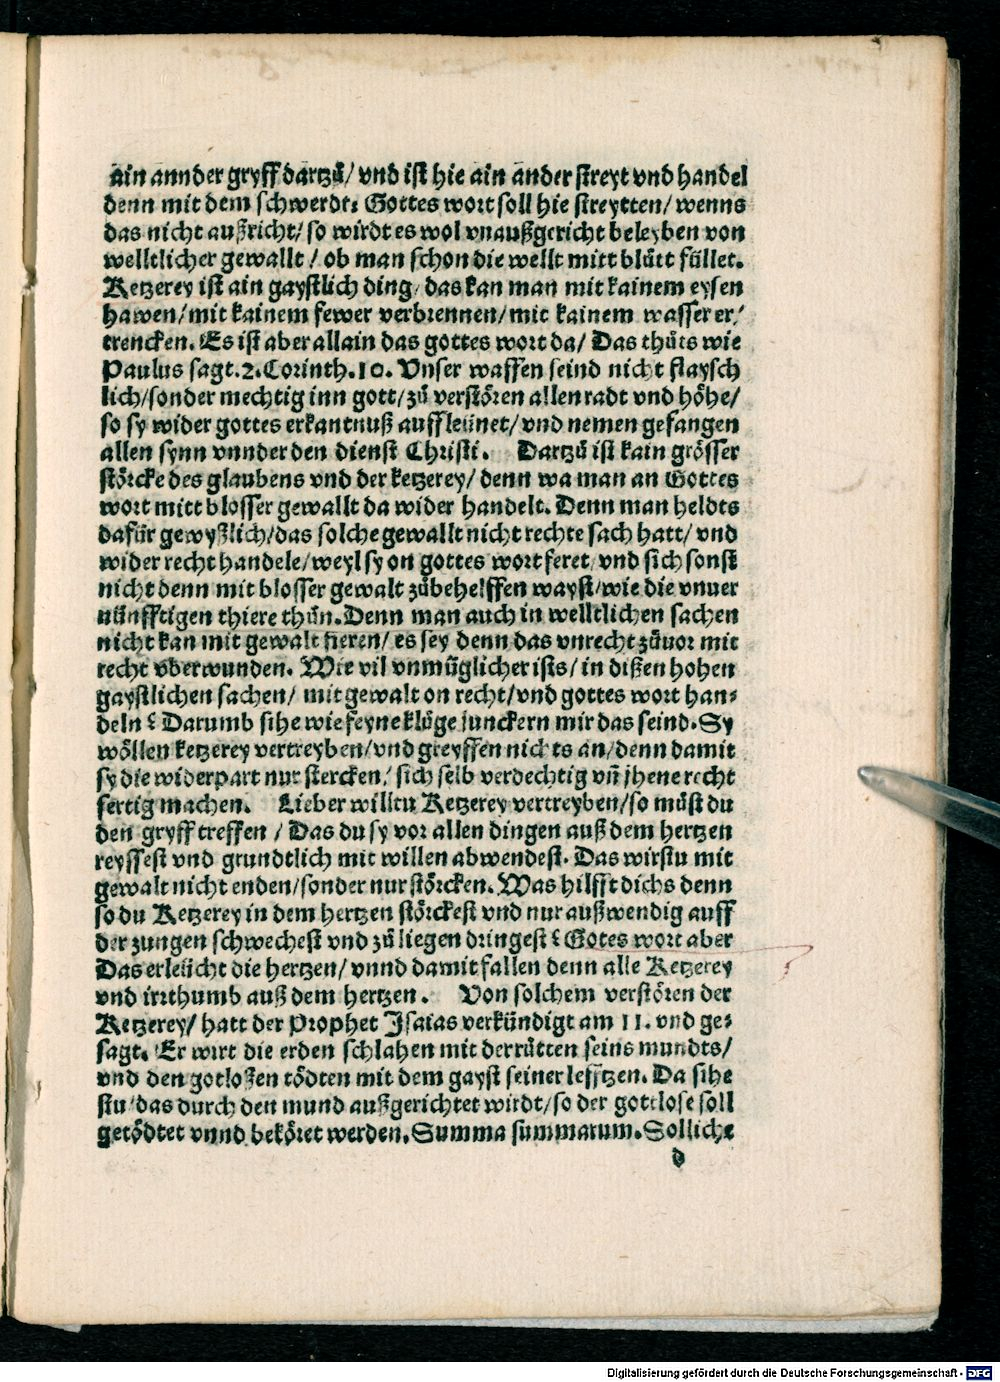 ain annder gryff dartzů/ vnd ist hie ain ander streyt vnd handel
denn mit dem schwerdt: Gottes wort soll hie streytten/ wenns
das nicht außricht/ so wirdt es wol vnaußgericht beleyben von
welltlicher gewallt / ob man schon die wellt mitt blůtt füllet.
Ketzerey ist ain gaystlich ding/ das kan man mit kainem eysen
hawen/ mit kainem fewer verbrennen/ mit kainem wasser er/
trencken. Es ist aber allain das gottes wort da/ Das thůts wie
Paulus sagt. 2. Corinth. 10. Vnser waffen seind nicht flaysch
lich/ sonder mechtig inn gott/ zů verstören allen radt vnd höhe/
so sy wider gottes erkantnuß auffleünet/ vnd nemen gefangen
allen synn vnnder den dienst Christi. Dartzů ist kain grösser
störcke des glaubens vnd der ketzerey/ denn wa man an Gottes
wort mitt blosser gewallt da wider handelt. Denn man heldts
dafür gewyßlich/ das solche gewallt nicht rechte sach hatt/ vnd
wider recht handele/ weyl sy on gottes wort feret/ vnd sich sonst
nicht denn mit blosser gewalt zůbehelffen wayst/ wie die vnuer
nünfftigen thiere thůn. Denn man auch in welltlichen sachen
nicht kan mit gewalt fieren/ es sey denn das vnrecht zůuor mit
recht vberwunden. Wie vil vnmüglicher ists/ in dißen hohen
gaystlichen sachen/ mit gewalt on recht/ vnd gottes wort han⸗
deln? Darumb sihe wie feyne klůge junckern mir das seind. Sy
wöllen ketzerey vertreyben/ vnd greyffen nichts an/ denn damit
sy die widerpart nur stercken/ sich selb verdechtig vñ jhene recht
fertig machen. Lieber willtu Ketzerey vertreyben/ so můst du
den gryff treffen / Das du sy vor allen dingen auß dem hertzen
reyssest vnd grundtlich mit willen abwendest. Das wirstu mit
gewalt nicht enden/ sonder nur störcken. Was hilfft dichs denn
so du Ketzerey in dem hertzen störckest vnd nur außwendig auff
der zungen schwechest vnd zů liegen dringest? Gotes wort aber
Das erleücht die hertzen/ vnnd damit fallen denn alle Ketzerey
vnd irrthumb auß dem hertzen. Von solchem verstören der
Ketzerey/ hatt der Prophet Isaias verkündigt am 11. vnd ge⸗
sagt. Er wirt die erden schlahen mit der růtten seins mundts/
vnd den gotloßen tödten mit dem gayst seiner lefftzen. Da sihe
stu/ das durch den mund außgerichtet wirdt/ so der gottlose soll
getödtet vnnd beköret werden. Summa summarum. Solliche
d
Digitalisierung gefördert durch die Deutsche Forschungsgemeinschaft - DFG